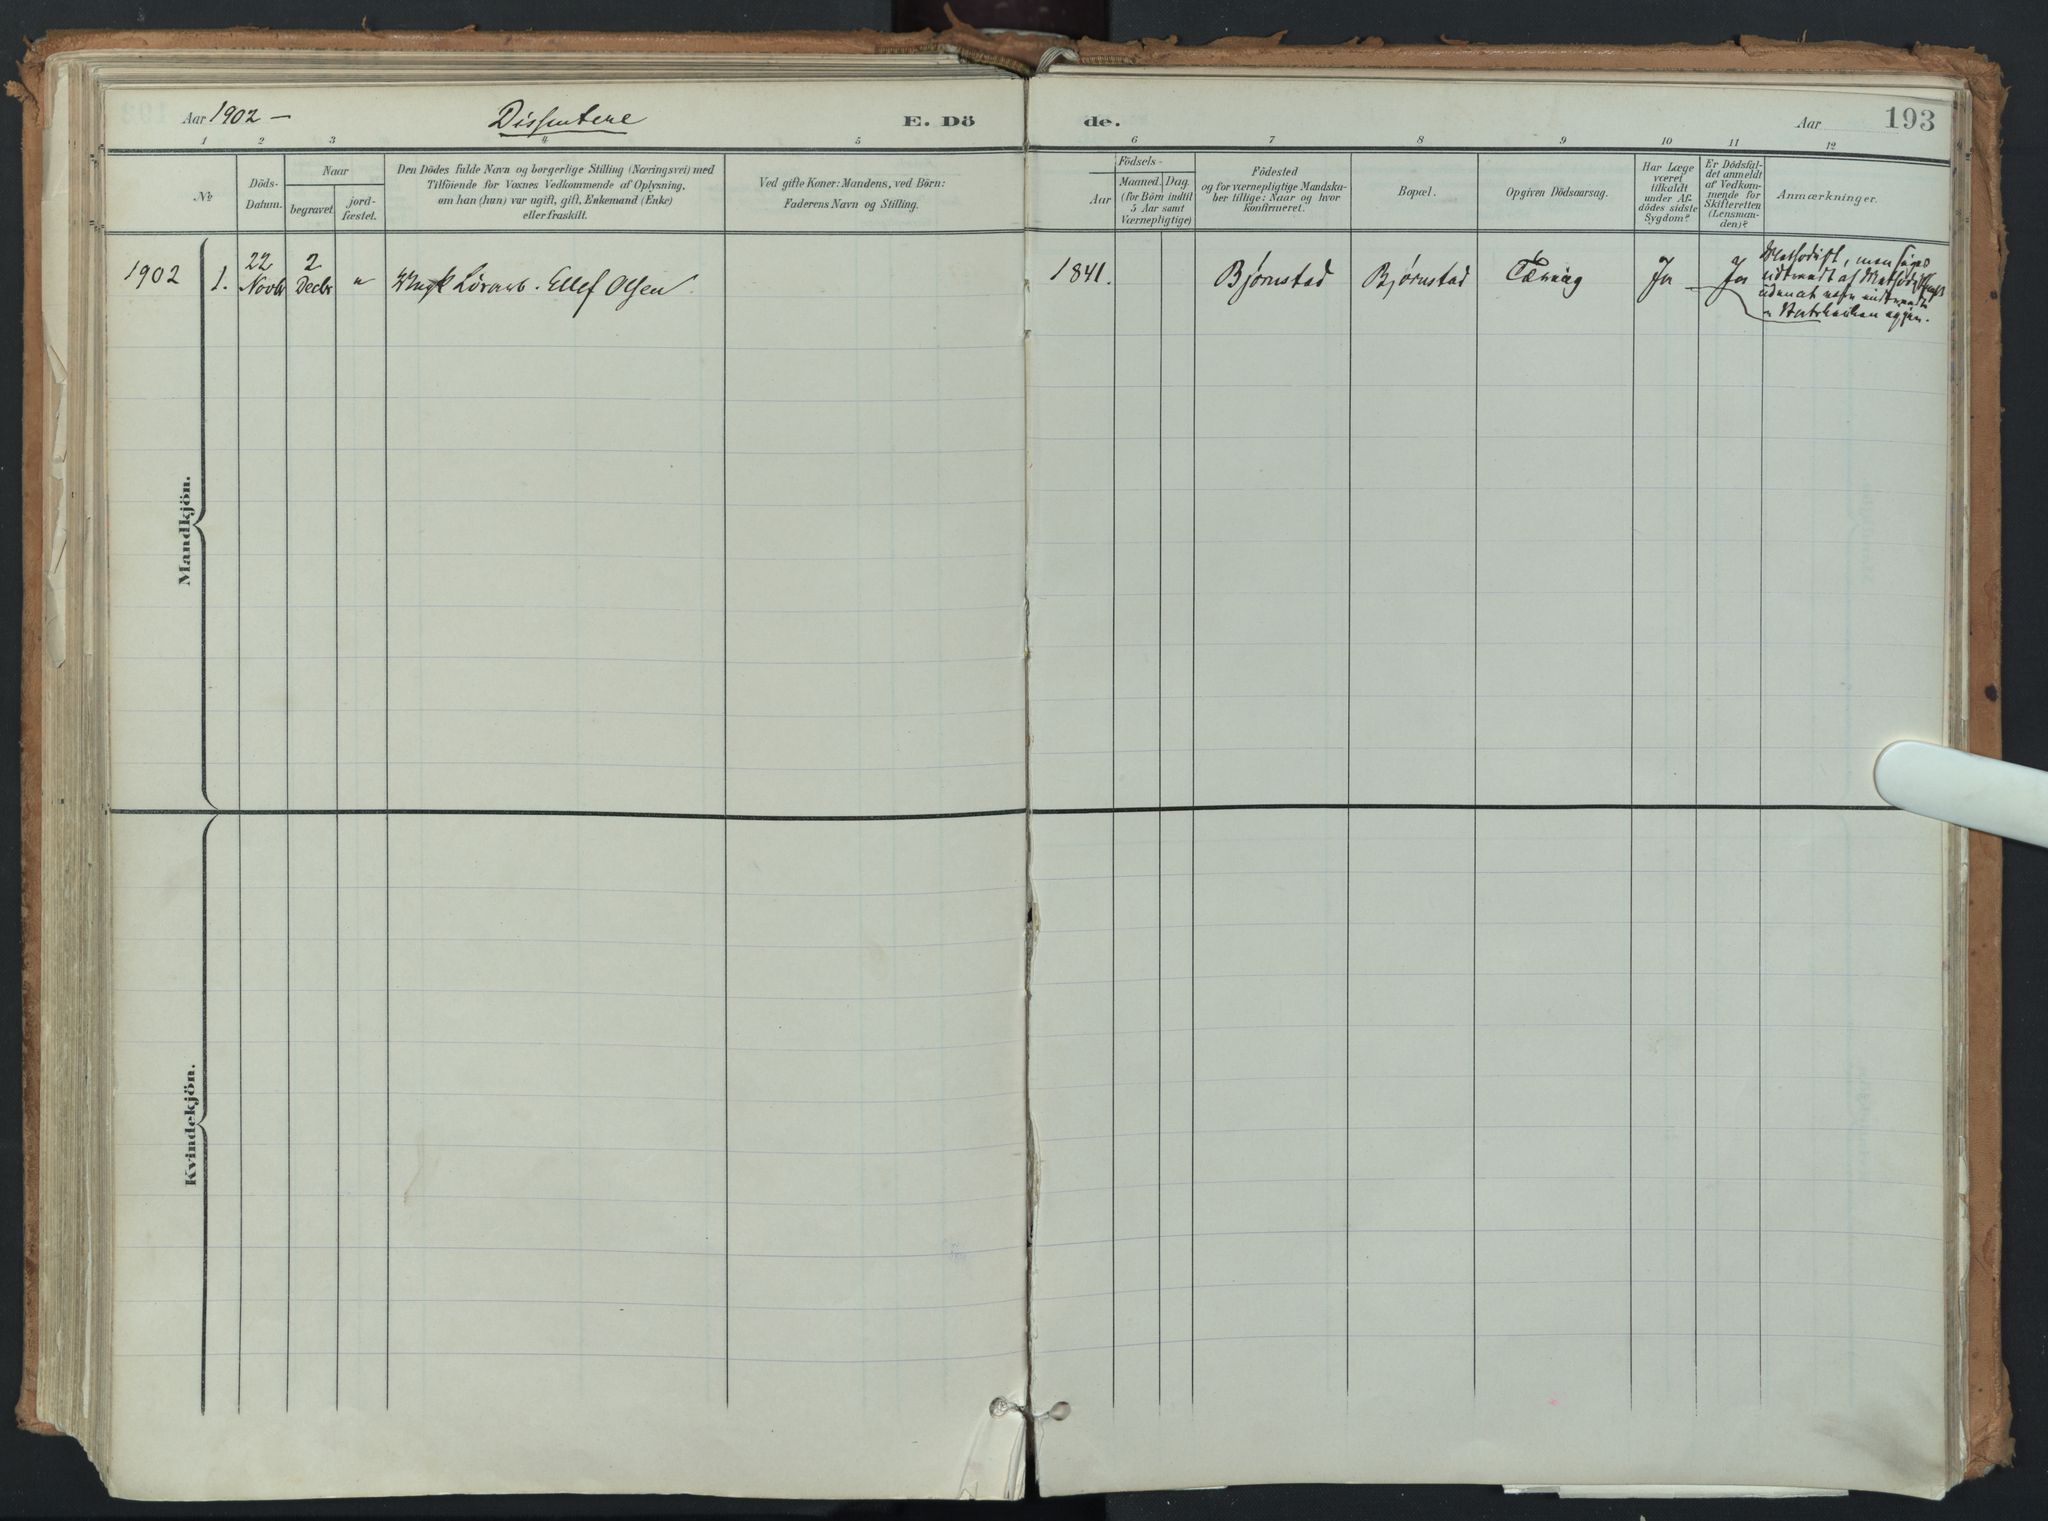 Aar 1902 –
Dissentere
E. Dö
de.
Aar
193
1
2
3
4
5
6
7
8
9
10
11
12
No
Döds-
Datum.
Naar
begravet.
jord-
fæstet.
Den Dödes fulde Navn og borgerlige Stilling (Næringsvei) med
Tilföiende for Voxnes Vedkommende af Oplysning,
om han (hun) var ugift, gift, Enkemand (Enke)
eller fraskilt.
Ved gifte Koner: Mandens, ved Börn:
Faderens Navn og Stilling.
Födsels-
Aar
Maaned.
Dag.
(for Börn indtil
5 Aar samt
Værnepligtige)
Födested
og for værnepligtige Mandska-
ber tillige: Naar og hvor
konfirmeret.
Bopæl.
Opgiven Dödsaarsag.
Har Læge
været
tilkaldt
under Af-
dödes sidste
Sygdom?
Er Dödsfal-
det anmeldt
af Vedkom-
mende for
Skifteretten
(Lensman-
den)?
Anmærkninger.
1902
1.
22
Novbr
2
Decbr
"
Ellef Olsen
1841.
Bjørnstad
Bjørnstad
Tæring
Ja
Ja
Methodist, men
udtraadt af
uden at
Mandkjön.
Kvindekjön.